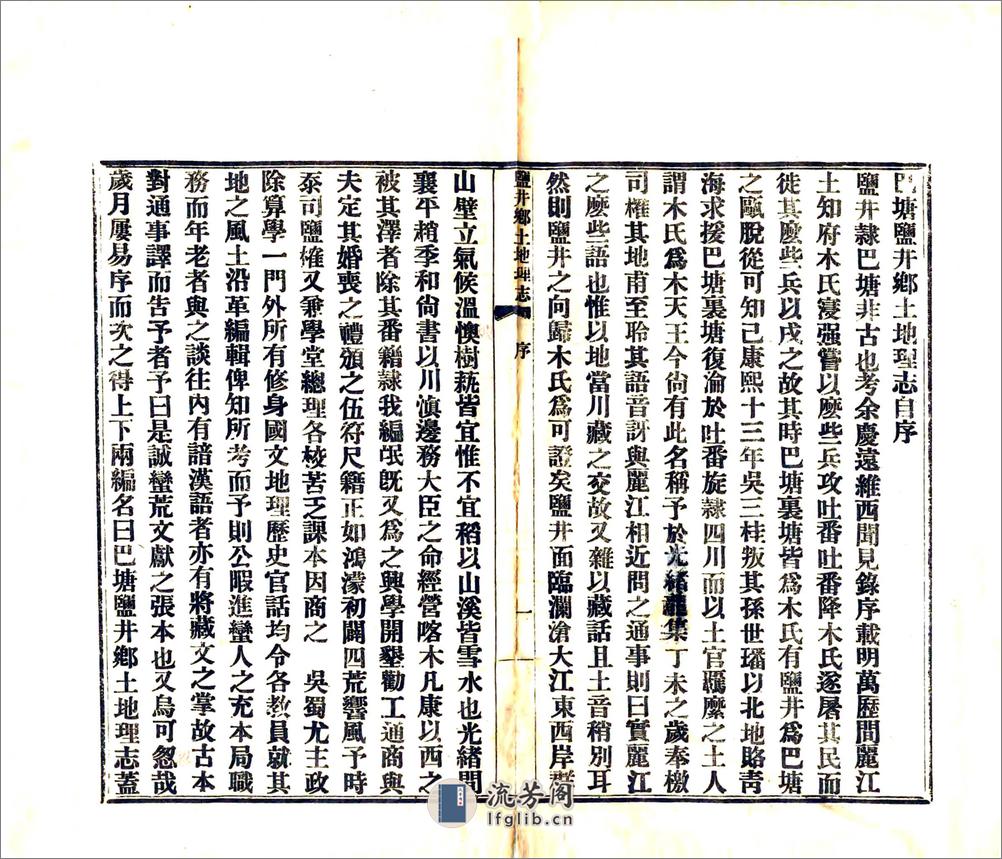 巴塘鹽井鄉土地理志自序
鹽井隸巴塘非古也考余慶遠維西聞見錄序載明萬歷間麗江
土知府木氏寖强嘗以麽些兵攻吐番吐番降木氏遂屠其民而
徙其麽些兵以戍之故其時巴塘裏塘皆爲木氏有鹽井爲巴塘
之甌脫從可知已康熙十三年吳三桂叛其孫世璠以北地賂靑
海求援巴塘裏塘復淪於吐番旋隸四川而以土官羈縻之土人
謂木氏爲木天王今尙有此名稱予於光緒龍集丁未之歲奉檄
司榷其地甫至聆其語音訝與麗江相近問之通事則曰實麗江
之麽些語也惟以地當川藏之交故又雜以藏話且土音稍別耳
然則鹽井之向歸木氏爲可證矣鹽井面臨瀾滄大江東西岸羣
鹽井鄉土地理志 序 一
山壁立氣候溫燠樹蓺皆宜惟不宜稻以山溪皆雪水也光緒間
襄平趙季和尙書以川滇邊務大臣之命經營喀木凡康以西之
被其澤者除其番籍隸我編氓旣又爲之興學開墾勸工通商與
夫定其婚喪之禮頒之伍符尺籍正如鴻濛初闢四荒響風予時
忝司鹽榷又兼學堂總理各校苦乏課本因商之 吳蜀尤主政
除算學一門外所有修身國文地理歷史官話均令各教員就其
地之風土沿革編輯俾知所考而予則公暇進蠻人之充本局職
務而年老者與之談往內有諳漢語者亦有將藏文之掌故古本
對通事譯而告予者予曰是誠蠻荒文獻之張本也又烏可忽哉
歲月屢易序而次之得上下兩編名曰巴塘鹽井鄉土地理志蓋
流芳阁
lfglib.cn